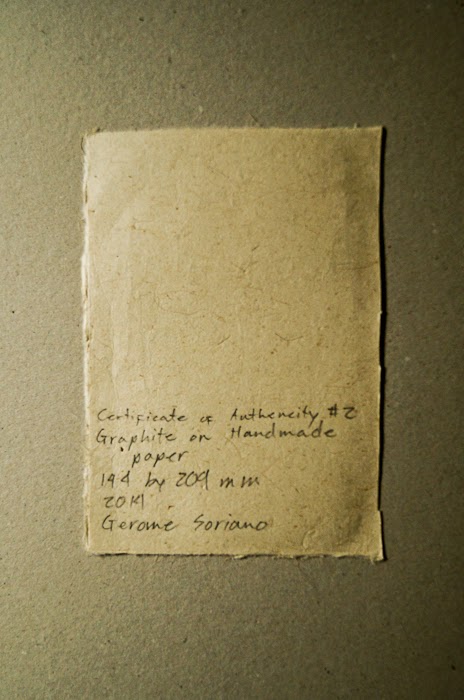 Certificate of Authencity #2
Graphite on Handmade
paper
144 by 209 mm
2014
Gerome Soriano